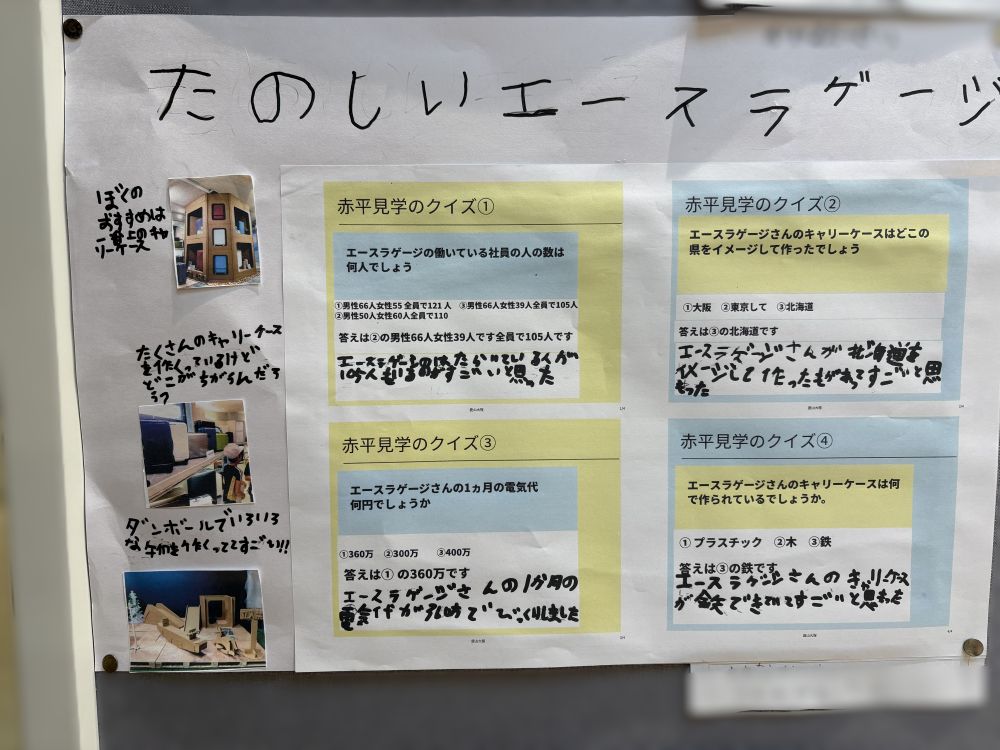 たのしいエースラゲージ
ぼくの
おすすめは
一番上のキャ
リーケース
たくさんのキャリーケース
を作くっているけど
どこがちがらんだろ
う?
ダンボールでいろいろ
な
つくっててすごい!!
赤平見学のクイズ①
エースラゲージの働いている社員の人の数は
何人でしょう
①男性66人女性55 全員で121 人 ③男性66人女性39人全員で105人
②男性50人女性60人全員で110
答えは②の男性66人女性39人です全員で105人です
エースラゲージのはたらいている人が
105人もいるのがすごいと思った
赤平見学のクイズ②
エースラゲージさんのキャリーケースはどこの
県をイメージして作ったでしょう
①大阪 ②東京して ③北海道
答えは③の北海道です
エースラゲージさんが北海道を
イメージして作ったもがあってすごいと思
もった
赤平見学のクイズ③
エースラゲージさんの1ヵ月の電気代
何円でしょうか
①360万 ②300万 ③400万
答えは① の360万です
エースラゲージさんの1か月の
電気代が360万でびっくりしました
赤平見学のクイズ④
エースラゲージさんのキャリーケースは何
で作られているでしょうか。
① プラスチック ②木 ③鉄
答えは③の鉄です
エースラゲージさんのキャリーケース
が鉄でできててすごいと思もった